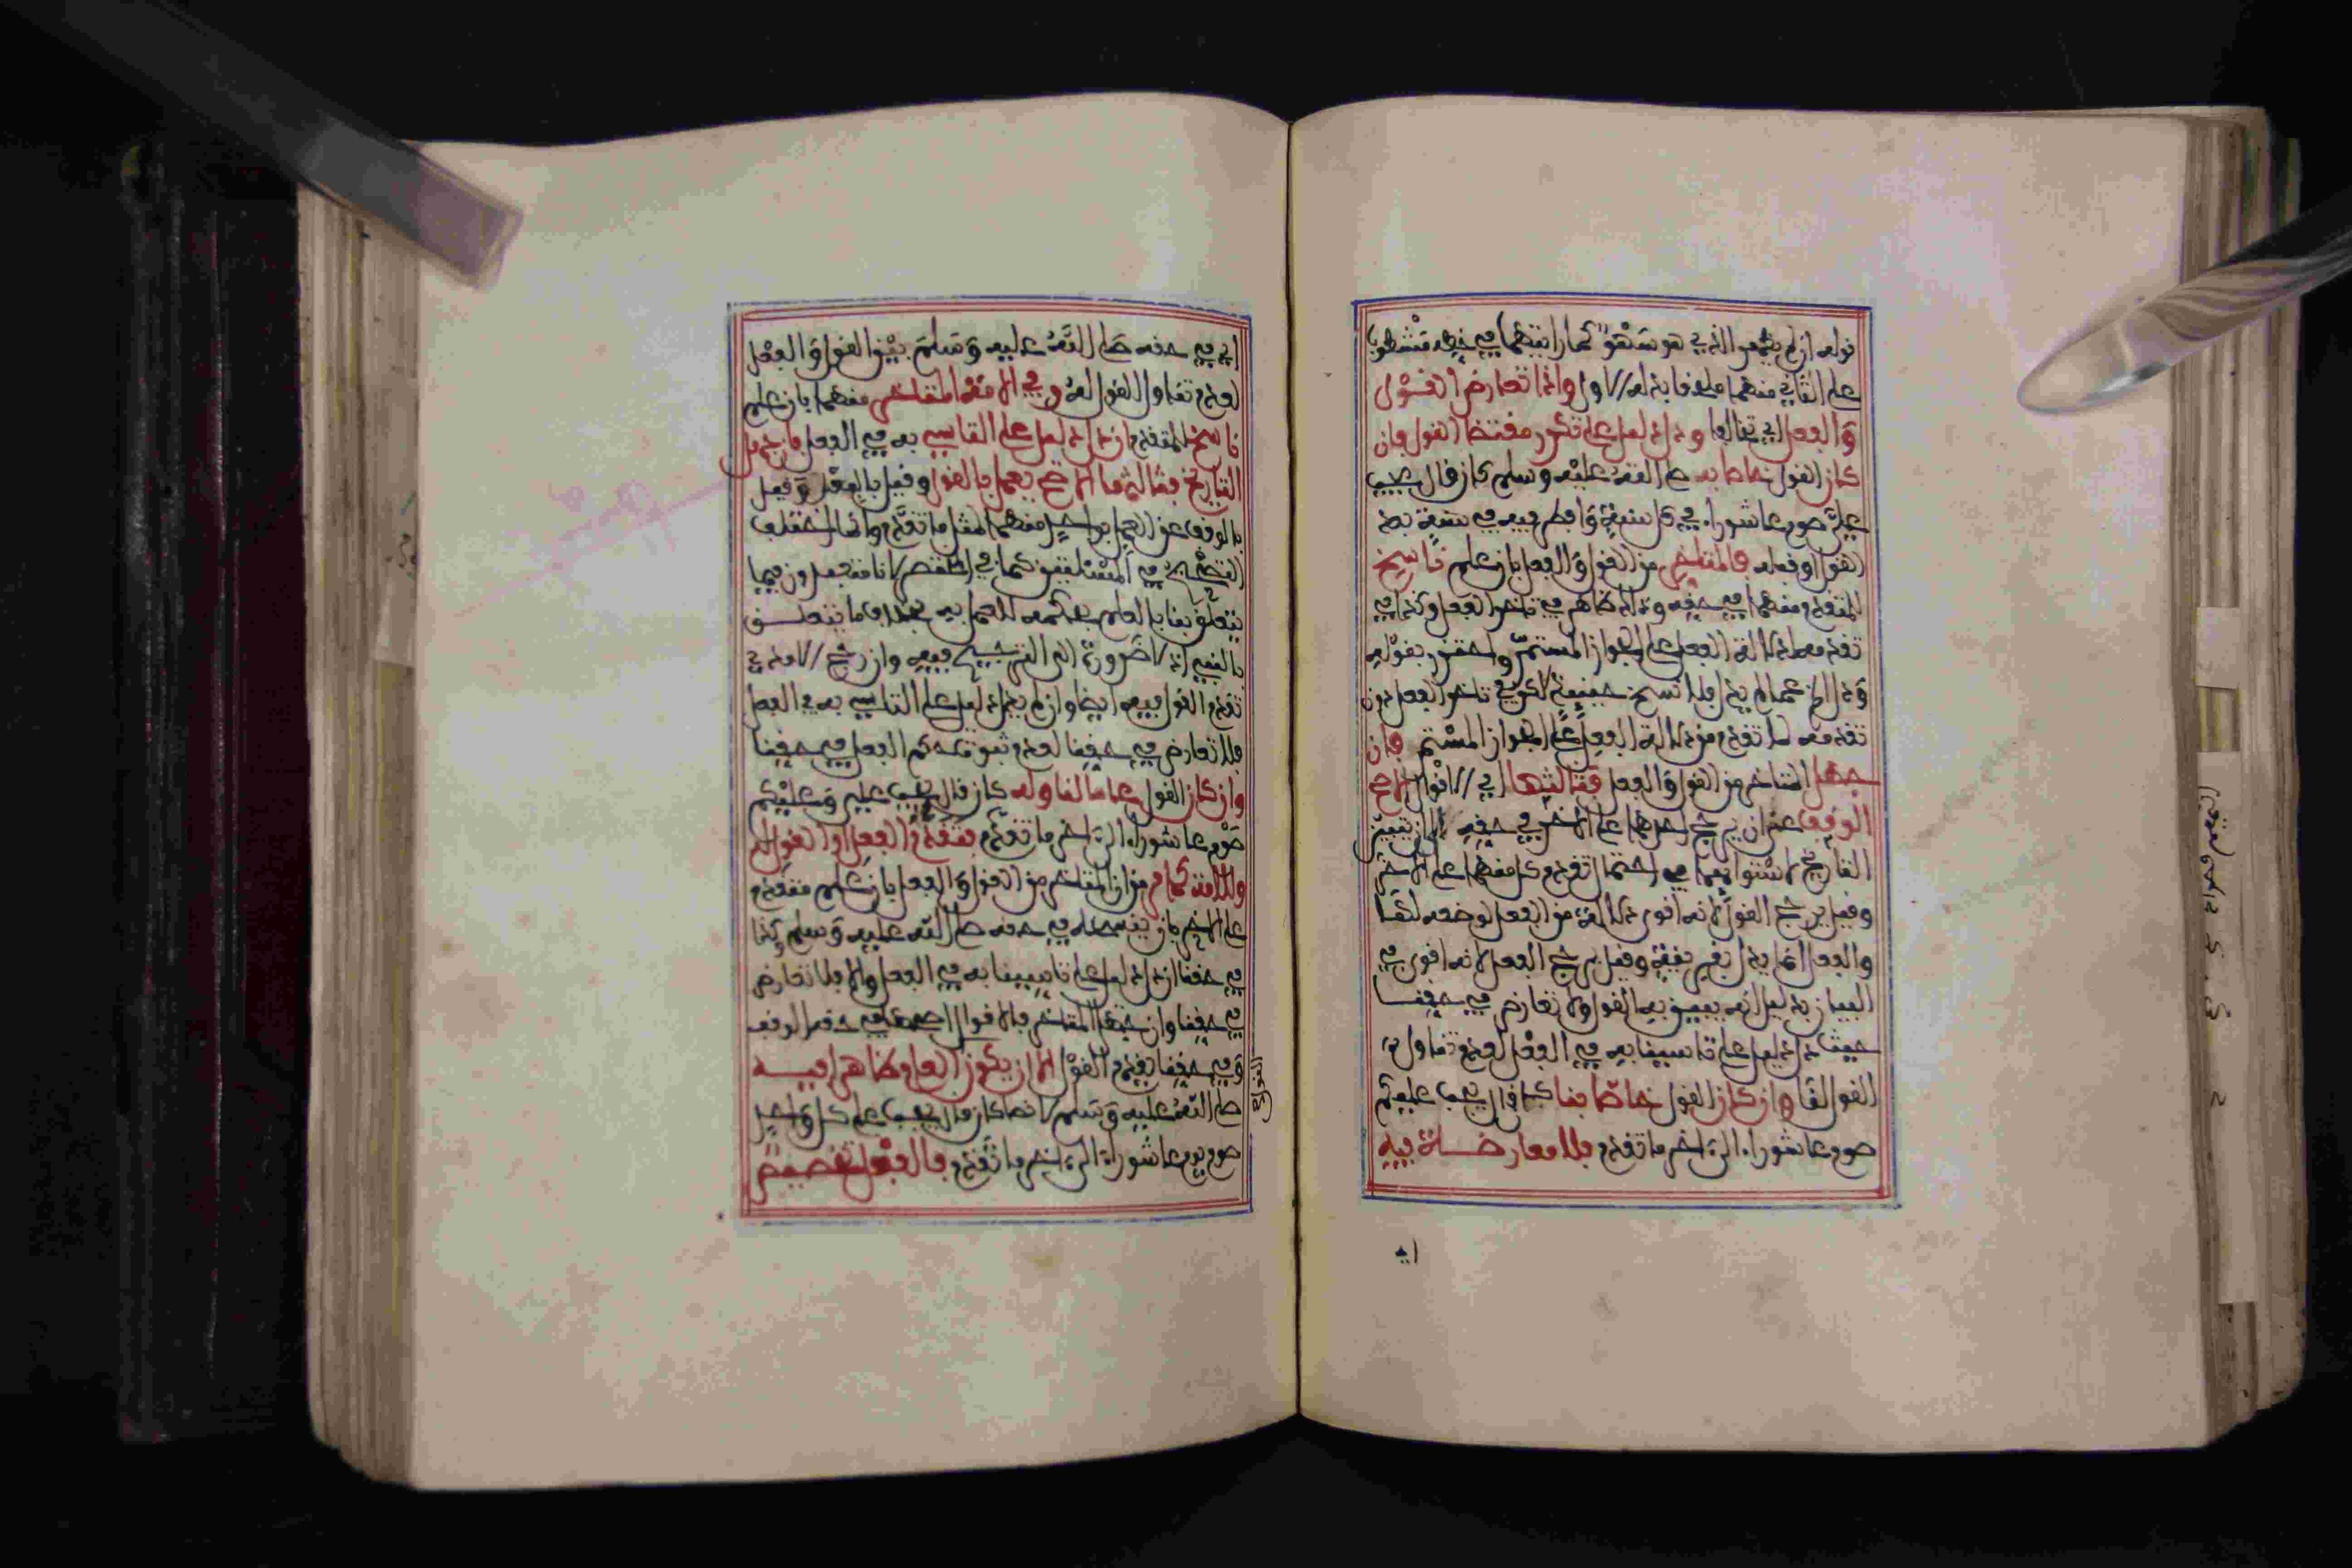 قوله ان لم يظهر الذي هو سهو كما رايتهما في خطه مشطوبا
على الثاني منهما ملحقا بدله الاول واذا تعارض القول
والفعل اي تخالفا ودل دليل على تكرر مقتضى القول فان
كان القول خاصا به صلى الله عليه وسلم كان قال يجب
علي صوم عاشوراء في كل سنة وافطر فيه في سنة بعد
القول او قبله فالمتاخر من القول والفعل بان علم ناسخ
للمتقدم منهما في حقه وذلك ظاهر في تاخر الفعل وكذا في
تقدمه لدلالة الفعل على الجواز المستمر واحترز بقوله
ودل الخ عما لم يدل فلا نسخ حينئذ لكن في تاخر الفعل دون
تقدمه لما تقدم من دلالة الفعل على الجواز المستمر فان
جهل المتاخر من القول والفعل فثالثها اي الاقوال الاصح
الوقف عن ان يرجح احدهما على الاخر في حقه الى ان يتبين
التاريخ لاستوائهما في احتمال تقدم كل منهما على الاخر
وقيل يرجح القول لانه اقوى دلالة من الفعل لوضعه لها
والفعل انما يدل بقرينة وقيل يرجح الفعل لانه اقوى في
البيان بدليل انه يبين به القول ولا تعارض في حقنا
حيث دل دليل على تاسينا به في الفعل لعدم تناول
القول لنا وان كان القول خاصا بنا كان قال يجب عليكم
صوم عاشوراء الى اخر ما تقدم فلا معارضة فيه
اي
اي في حقه صلى الله عليه وسلم بين القول والفعل
لعدم تناول القول له وفي الامة المتاخر منهما بان علم
ناسخ للمتقدم ان دل دليل على التاسي به في الفعل فان جهل
التاريخ فثالثها الاصح يعمل بالقول وقيل بالفعل وقيل
بالوقف عن العمل بواحد منهما لمثل ما تقدم وانما اختلف
التصحيح في المسئلتين كما في المختصر لانا متعبدون فيما
يتعلق بنا بالعلم بحكمه لنعمل به بخلاف ما يتعلق
بالنبي اذ لا ضرورة الى الترجيح فيه وان رجح الامدي
تقدم القول فيه ايضا وان لم يدل دليل على التاسي به في الفعل
فلا تعارض في حقنا لعدم ثبوت حكم الفعل في حقنا
وان كان القول عاما لنا وله كان قال يجب علي وعليكم
صوم عاشوراء الى اخر ما تقدم فتقدم الفعل او القول له
وللامة كما مر من ان المتاخر من القول والفعل بان علم متقدم
على الاخر بان ينسخه في حقه صلى الله عليه وسلم وكذا
في حقنا ان دل دليل على تاسينا به في الفعل والا فلا تعارض
في حقنا وان جهل المتاخر فالاقوال اصحها في حقه الوقف
وفي حقنا تقدم القول الا ان يكون العام ظاهرا فيه
صلى الله عليه وسلم لا نصا كان قال يجب على كل واحد
صوم يوم عاشوراء الى اخر ما تقدم فالفعل تخصيص